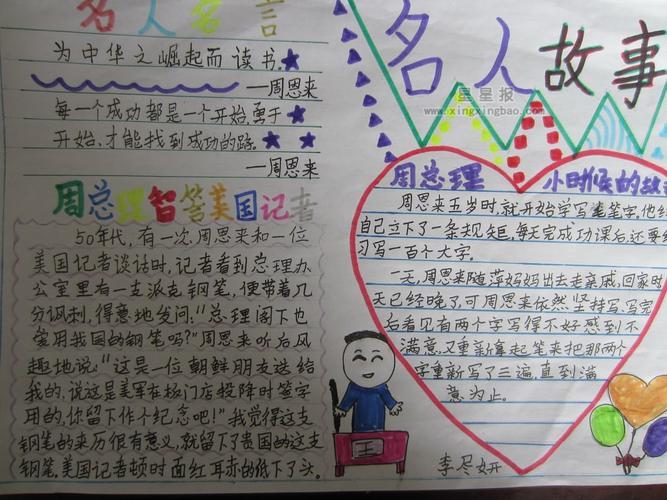 名人名言
为中华之崛起而读书.
—周恩来
每一个成功都是一个开始,勇于
开始,才能找到成功的路.
—周恩来
周总理智答美国记者
50年代,有一次,周恩来和一位
美国记者谈话时,记者看到总理办
公室里有一支派克钢笔,便带着几
分讽刺,得意地发问:"总理阁下也
常用我国的钢笔吗?"周恩来听后风
趣地说:"这是一位朝鲜朋友送给
我的,说这是美军在板门店投降时签字
用的,你留下作个纪念吧!"我觉得这支
钢笔的来历很有意义,就留下了贵国的这支
钢笔,美国记者顿时面红耳赤的低下了头.
名人故事
星星报
www.xingxingbao.com
周总理 小时候的故
周恩来五岁时,就开始学写毛笔字,他给
自己立下了一条规矩,每天完成功课后,还要练
习写一百个大字.
一天,周恩来随萍妈妈出去走亲戚,回家时
天已经晚了,可周恩来依然坚持写,写完
后看见有两个字写得不好感到不
满意,又重新拿起笔来把那两个
字重新写了三遍,直到满
意为止。
王
李尽妍